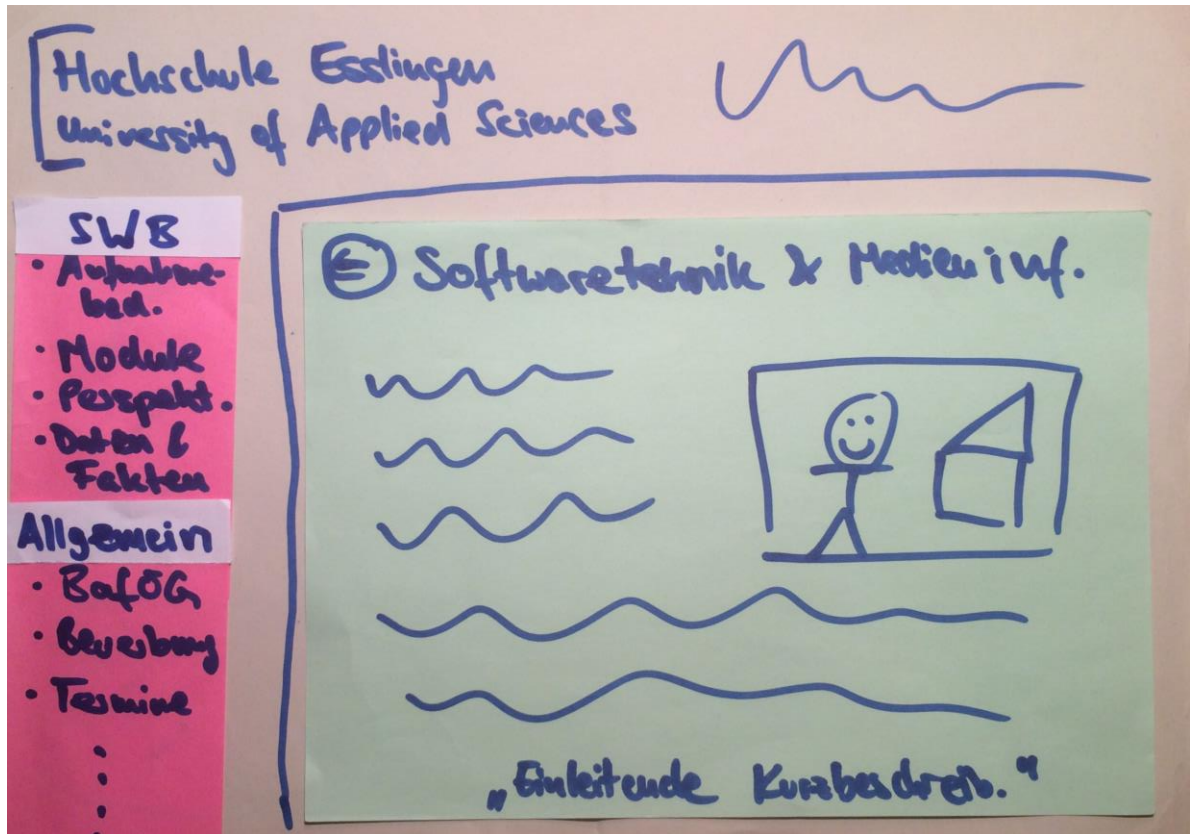 Hochschule Esslingen
University of Applied Sciences
SWB
• Aufnahme-
bed.
• Module
• Perspekt.
• Daten &
Fakten
Allgemein
• BafÖG
• Bewerbung
• Termine
Softwaretechnik & Medieninf.
„Einleitende Kurzbeschreib.“